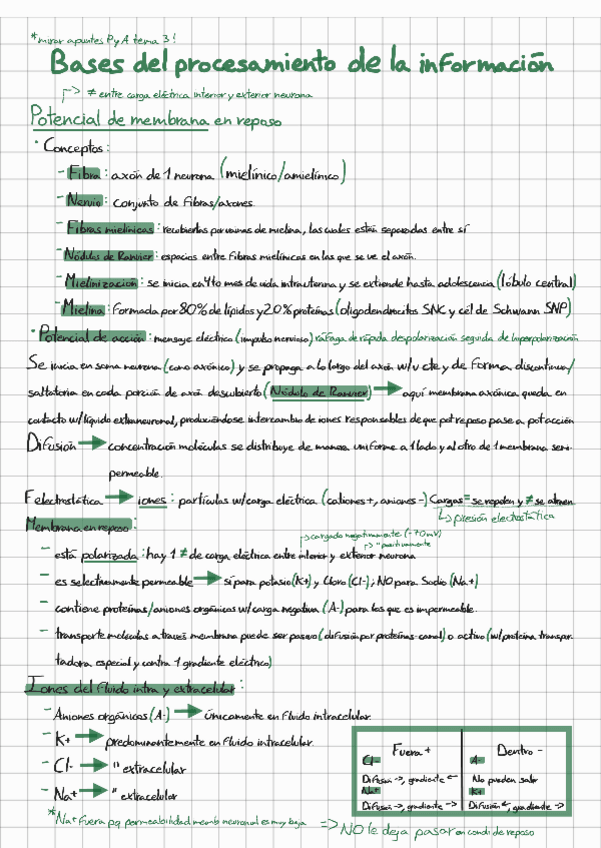 *mirar apuntes PyA tema 3!
Bases del procesamiento de la información
↱> ≠ entre carga eléctrica interior y exterior neurona
Potencial de membrana en reposo
· Conceptos:
- Fibra: axón de 1 neurona (mielínico/amielínico)
- Nervio: conjunto de Fibras/axones.
- Fibras mielínicas: recubiertas por vainas de mielina, las cuales están separadas entre sí
- Nódulos de Ranvier: espacios entre Fibras mielínicas en las que se ve el axón.
- Mielinización: se inicia en 4to mes de vida intrauterina y se extiende hasta adolescencia (lóbulo central)
- Mielina: Formada por 80% de lípidos y 20% proteínas (oligodendrocitos SNC y cél de Schwann SNP)
· Potencial de acción: mensaje eléctrico (impulso nervioso) ráfaga de rápida despolarización seguida de hiperpolarización
Se inicia en soma neurona (cono axónico) y se propaga a lo largo del axón w/v cte y de Forma discontinua/
saltatoria en cada porción de axón descubierto (Nódulo de Ranvier) → aquí membrana axónica queda en
contacto w/líquido extraneuronal, produciéndose intercambio de iones responsables de que pot reposo pase a pot acción
Difusión → concentración moléculas se distribuye de manera uniforme a 1 lado y al otro de 1 membrana semi-
permeable.
F electrostática → iones: partículas w/carga eléctrica (cationes +, aniones -) Cargas = se repelen y ≠ se atraen
↳ presión electrostática
Membrana en reposo:
↱> cargada negativamente (-70mV)
↱> " positivamente
- está polarizada: hay 1 ≠ de carga eléctrica entre interior y exterior neurona
- es selectivamente permeable → sí para potasio (K+) y Cloro (Cl-); NO para Sodio (Na+)
- contiene proteínas/aniones orgánicos w/carga negativa (A-) para los que es impermeable.
- transporte moléculas a través membrana puede ser pasivo (difusión por proteínas-canal) o activo (w/proteína transpor-
tadora especial y contra 1 gradiente eléctrico)
Iones del Fluido intra y extracelular:
- Aniones orgánicos (A-) → únicamente en Fluido intracelular.
- K+ → predominantemente en Fluido intracelular.
- Cl- → " extracelular
- Na+ → " extracelular
*Na+ Fuera pq permeabilidad memb neuronal es muy baja => NO le deja pasar en condi de reposo
Fuera +
Cl-
Difusión ->, gradiente <-
Na+
Difusión ->, gradiente ->
Dentro -
A-
No pueden salir
K+
Difusión <-, gradiente ->